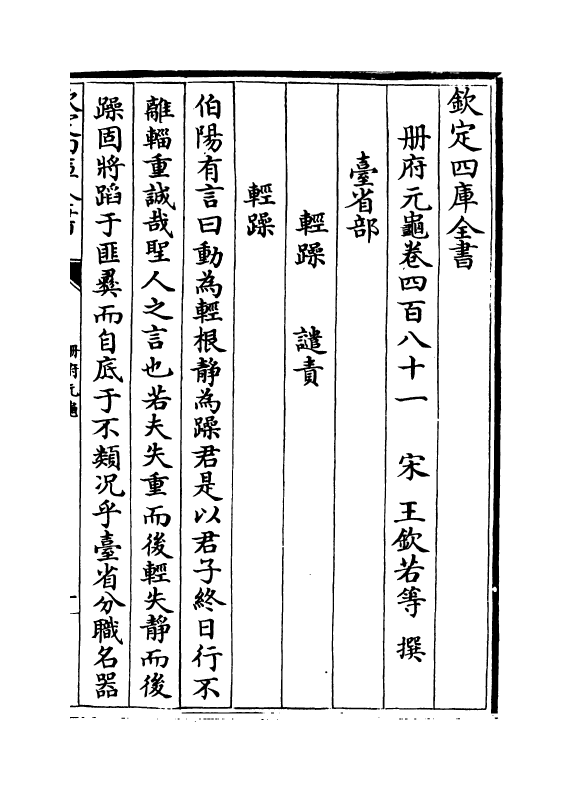 欽定四庫全書
册府元龜卷四百八十一　宋　王欽若等　撰
臺省部
輕躁　譴責
輕躁
伯陽有言曰動為輕根靜為躁君是以君子終日行不
離輜重誠哉聖人之言也若夫失重而後輕失靜而後
躁固將蹈于匪彞而自底于不類况乎臺省分職名器
册府元龜